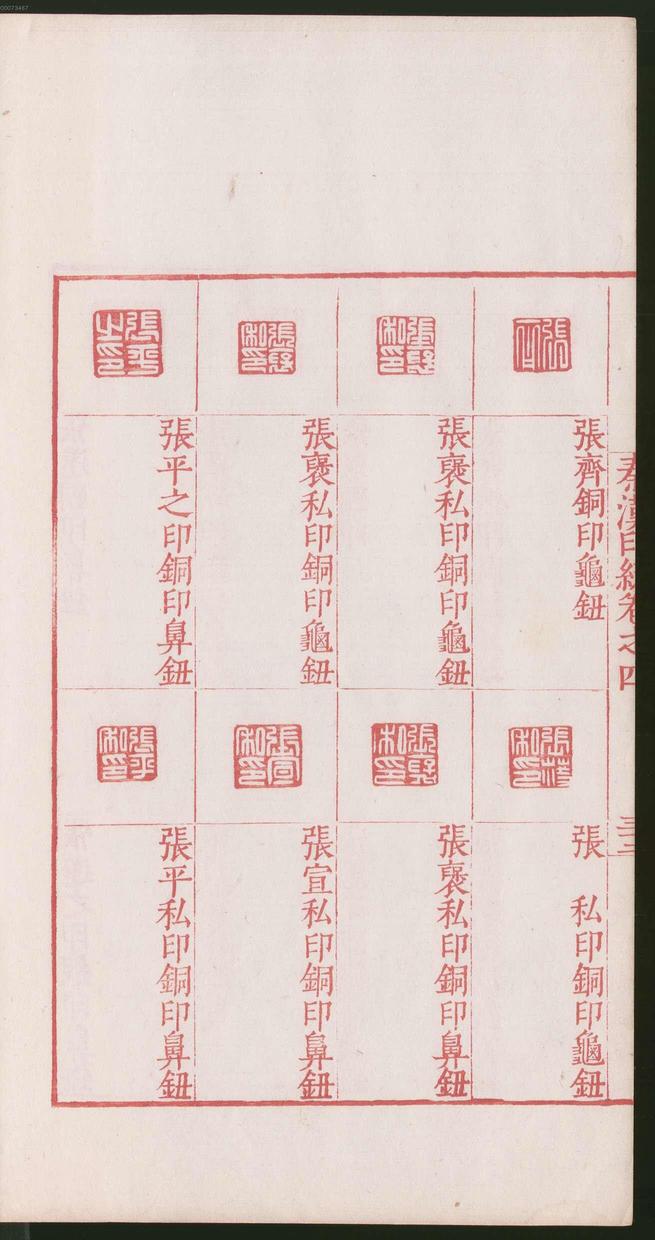 00073467
秦漢印統卷之四
三十二
張齊銅印龜鈕
張襃私印銅印龜鈕
張襃私印銅印龜鈕
張平之印銅印鼻鈕
張　私印銅印龜鈕
張襃私印銅印鼻鈕
張宣私印銅印鼻鈕
張平私印銅印鼻鈕